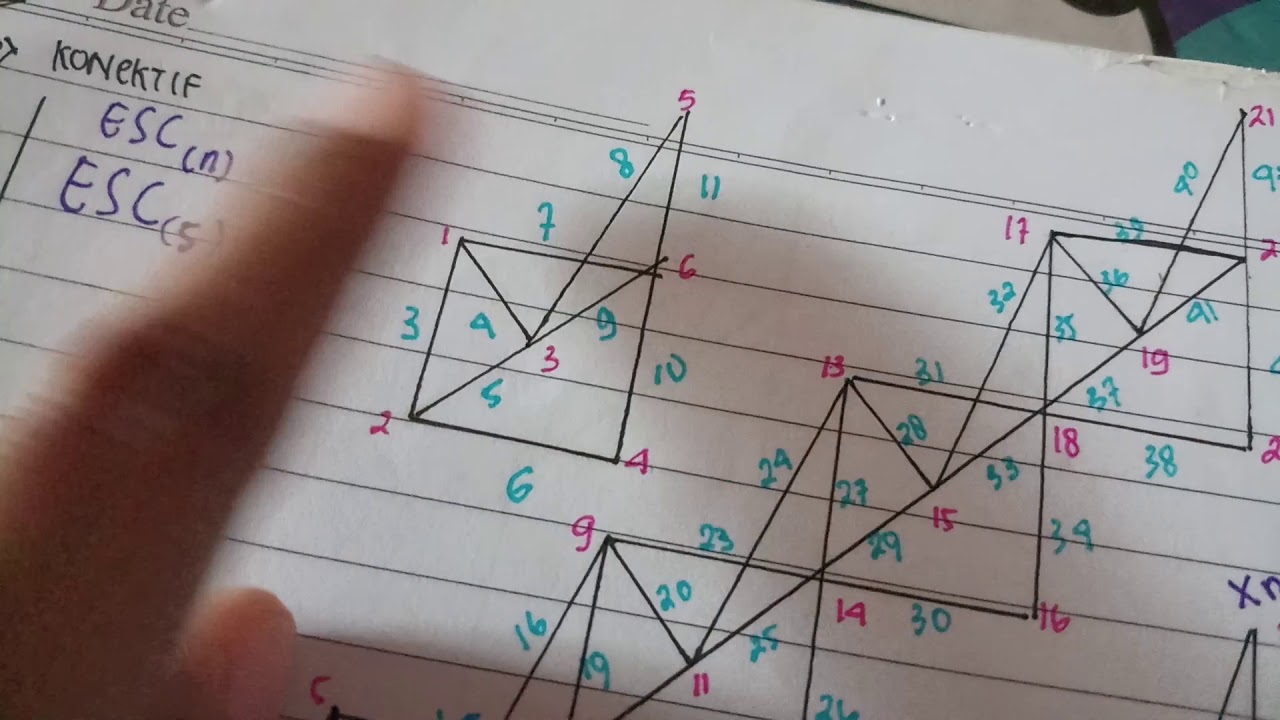 Date
KONEKTIF
ESC(n)
ESC(5)
5
8
11
7
1
6
3
4
9
3
10
5
2
4
6
21
40
17
39
32
36
41
35
19
13
31
37
28
18
38
24
33
27
15
9
23
29
34
20
14
30
16
16
25
19
11
26